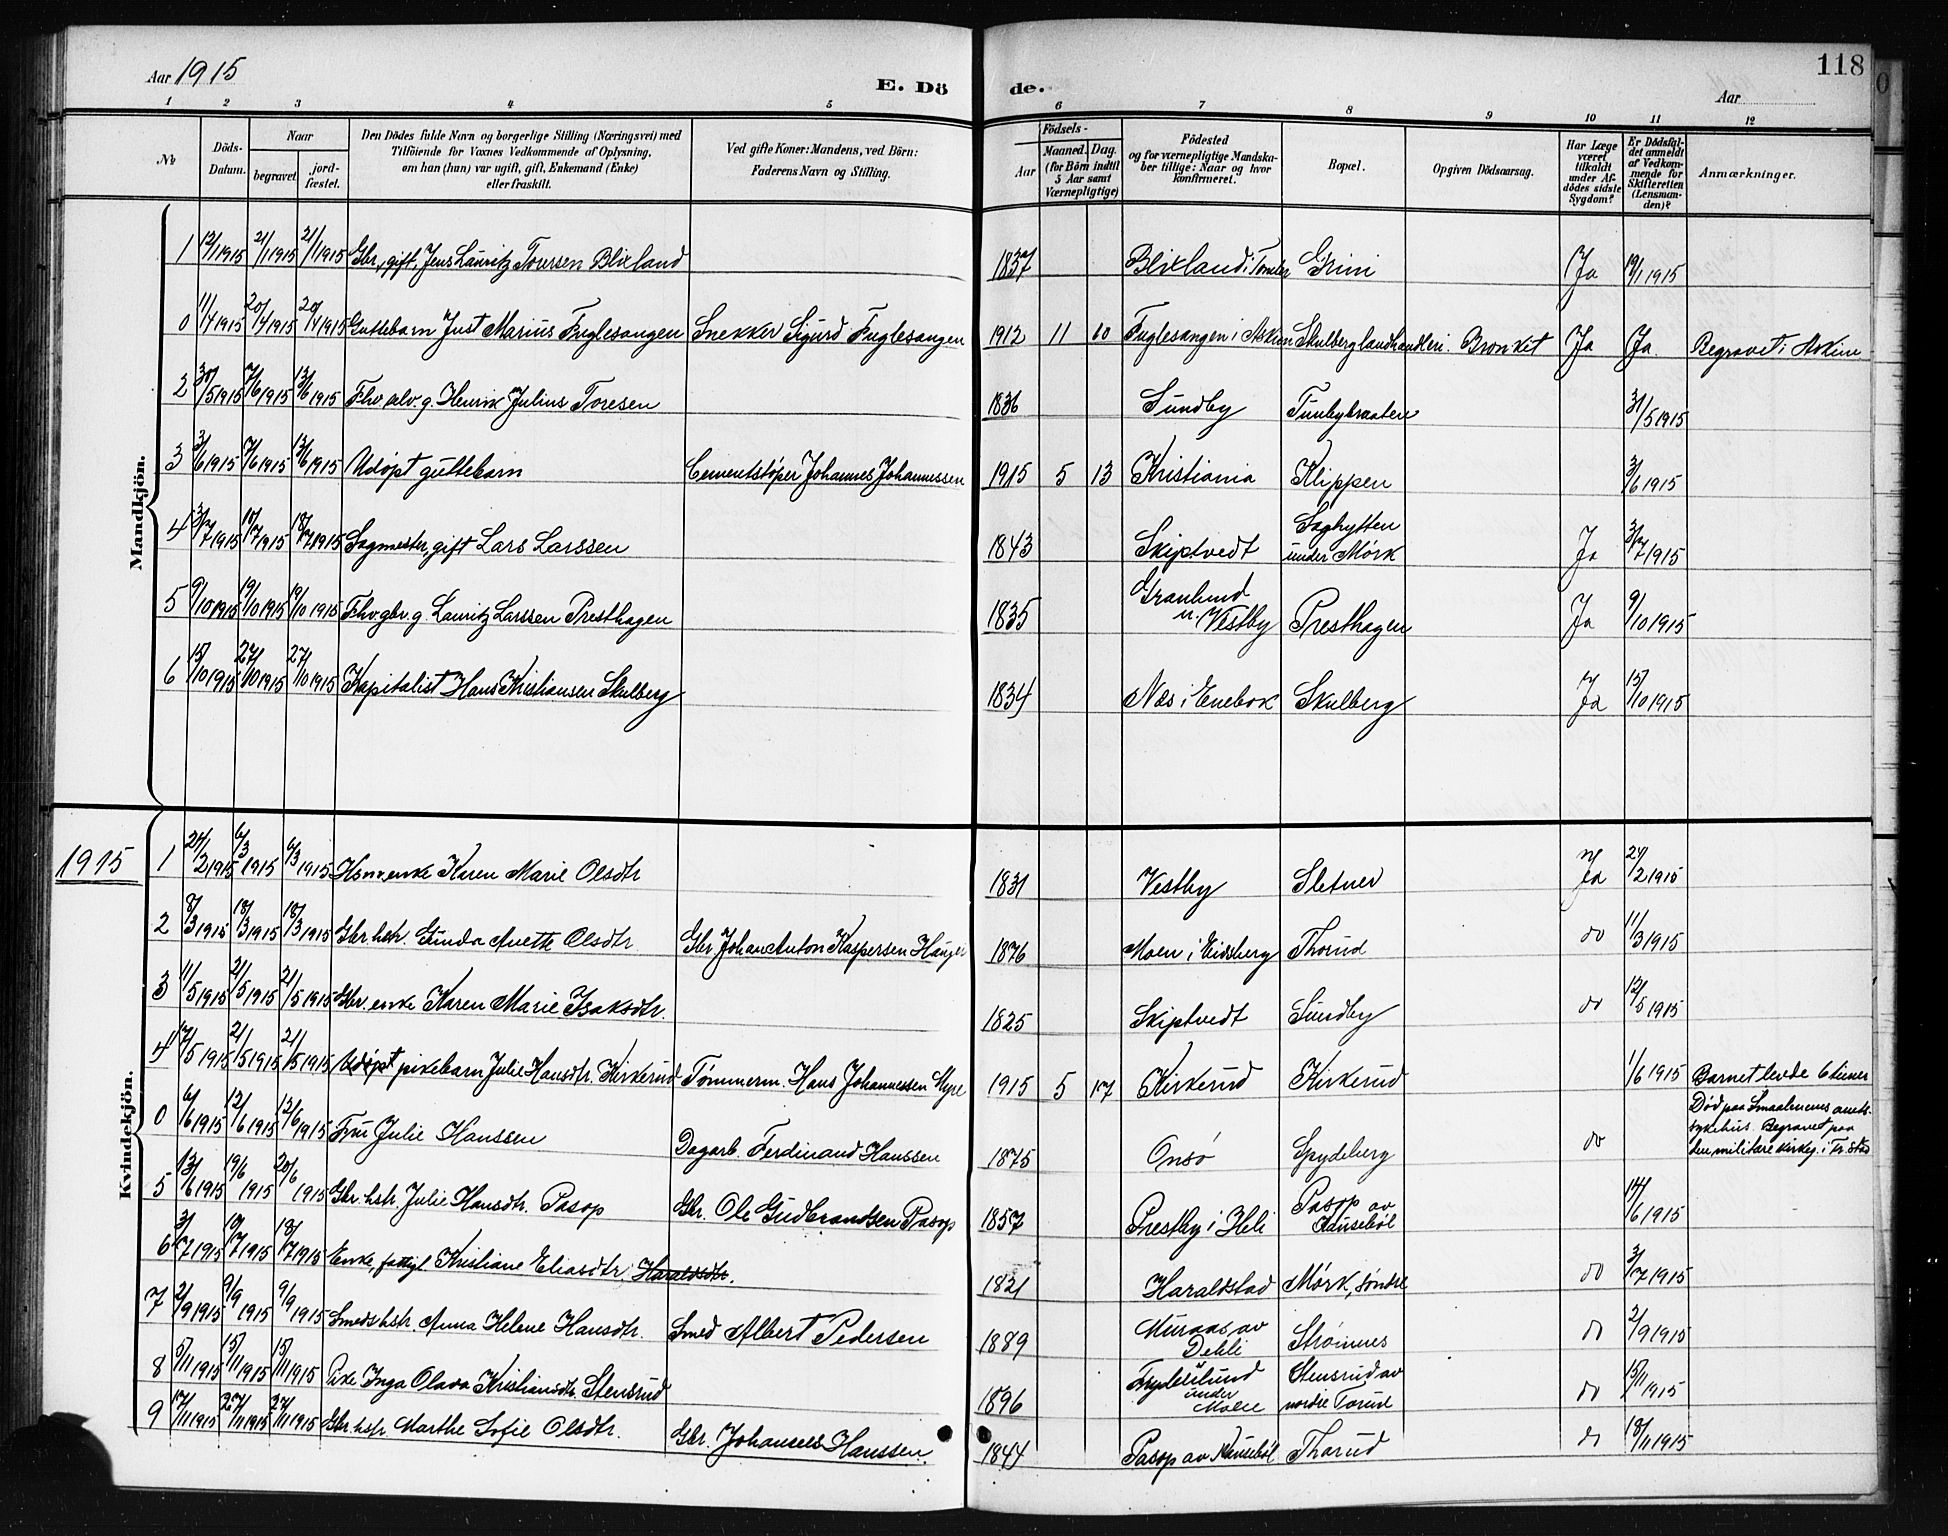 Aar 1915
E. Dö
de.
Aar
118
1 2 3 4 5 6 7 8 9 10 11 12
№
Döds-Datum.
Naar
begravet
jord-fæstet.
Den Dödes fulde Navn og borgerlige Stilling (Næringsvei) med
Tilföiende for Voxnes Vedkommende af Oplysning,
om han (hun) var ugift, gift, Enkemand (Enke)
eller fraskilt.
Ved gifte Koner: Mandens, ved Börn:
Faderens Navn og Stilling.
Födsels-
Aar
Maaned. Dag.
(for Börn indtil
5 Aar samt
Værnepligtige)
Födested
og for værnepligtige Mandska-
ber tillige: Naar og hvor
konfirmeret.
Bopæl.
Opgiven Dödsaarsag.
Har Læge
været
tilkaldt
under Af-
dödes sidste
Sygdom?
Er Dödsfal-
det anmeldt
af Vedkom-
mende for
Skifteretten
(Lensman-
den)?
Anmærkninger.
Mandkjön.
1 12/1 1915 21/1 1915 21/1 1915 Gbr., gift, Jens Lauritz Toresen Blixland 1837 Blixland i Tomter Grini Ja 19/1 1915
0 11/4 1915 20/4 1915 20/4 1915 Guttebarn Just Marius Fuglesangen Snekker Sigurd Fuglesangen 1912 11 10 Fuglesangen i Askim Skulberg landhandleri. Bronkit Ja Ja Begravet i Askim
2 30/5 1915 7/6 1915 13/6 1915 Fhv. selv. g. Henrik Julius Toresen 1836 Sundby Tunbybraaten 31/5 1915
3 3/6 1915 7/6 1915 13/6 1915 Udøpt guttebarn Cementstøper Johannes Johannessen 1915 5 13 Kristiania Klippen 3/6 1915
4 3/7 1915 18/7 1915 18/7 1915 Sagmester, gift Lars Larssen 1843 Skiptvedt Saghytten under Mørk Ja 3/7 1915
5 9/10 1915 19/10 1915 19/10 1915 Fhv. gbr. g. Lauritz Larssen Presthagen 1835 Granlund u. Vestby Presthagen Ja 9/10 1915
6 15/10 1915 27/10 1915 27/10 1915 Kapitalist Hans Kristiansen Skulberg 1834 Næs i Enebak Skulberg Ja 15/10 1915
1915
Kvindekjön.
1 24/2 1915 6/3 1915 6/3 1915 Hsmv. enke Karen Marie Olsdtr 1831 Vestby Sletner Ja 24/2 1915
2 8/3 1915 18/3 1915 18/3 1915 Gbr. hstr. Gunda Anette Olsdtr Gbr. Johan Anton Kaspersen Hauger 1876 Moen i Eidsberg Thorud do 11/3 1915
3 11/5 1915 21/5 1915 21/5 1915 Gbr. enke Karen Marie Isaksdtr. 1825 Skiptvedt Sundby do 12/5 1915
4 17/5 1915 21/5 1915 21/5 1915 Udøpt pikebarn Julie Hansdtr. Kirkerud Tømmerm. Hans Johannessen Myre 1915 5 17 Kirkerud Kirkerud 1/6 1915 Barnet levde 6 timer
0 6/6 1915 12/6 1915 12/6 1915 Fru Julie Hanssen Dagarb. Ferdinand Hanssen 1875 Onsø Spydeberg do Død paa Smaalenenes amts-
sykehus. Begravet paa
den militære kirkeg. i Fr. stad
5 13/6 1915 19/6 1915 20/6 1915 Gbr. hstr. Julie Hansdtr. Pasop Gbr. Ole Gudbrandsen Pasop 1857 Prestby i Heli Pasop av Knusebøl 14/6 1915
6 3/7 1915 18/7 1915 18/7 1915 Enke, fattigl. Kristiane Eliasdtr. Haraldsdtr. 1821 Haraldstad Mørk, søndre do 3/7 1915
7 2/9 1915 9/9 1915 9/9 1915 Smeds hstr. Anna Helene Hansdtr. Smed Albert Pedersen 1889 Muraas av Dehli Strømnes do 2/9 1915
8 5/11 1915 15/11 1915 15/11 1915 Pike Inga Olava Kristiansdtr. Stensrud 1896 under Moen Stensrud av nordre Torud do 15/11 1915
9 17/11 1915 27/11 1915 27/11 1915 Gbr. hstr. Marthe Sofie Olsdtr. Gbr. Johannes Hanssen. 1844 Pasop av Knusebøl Thorud do 18/11 1915